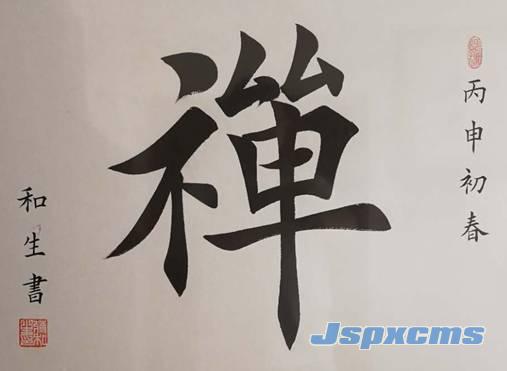 丙申初春
禅
和生書
Jspxcms